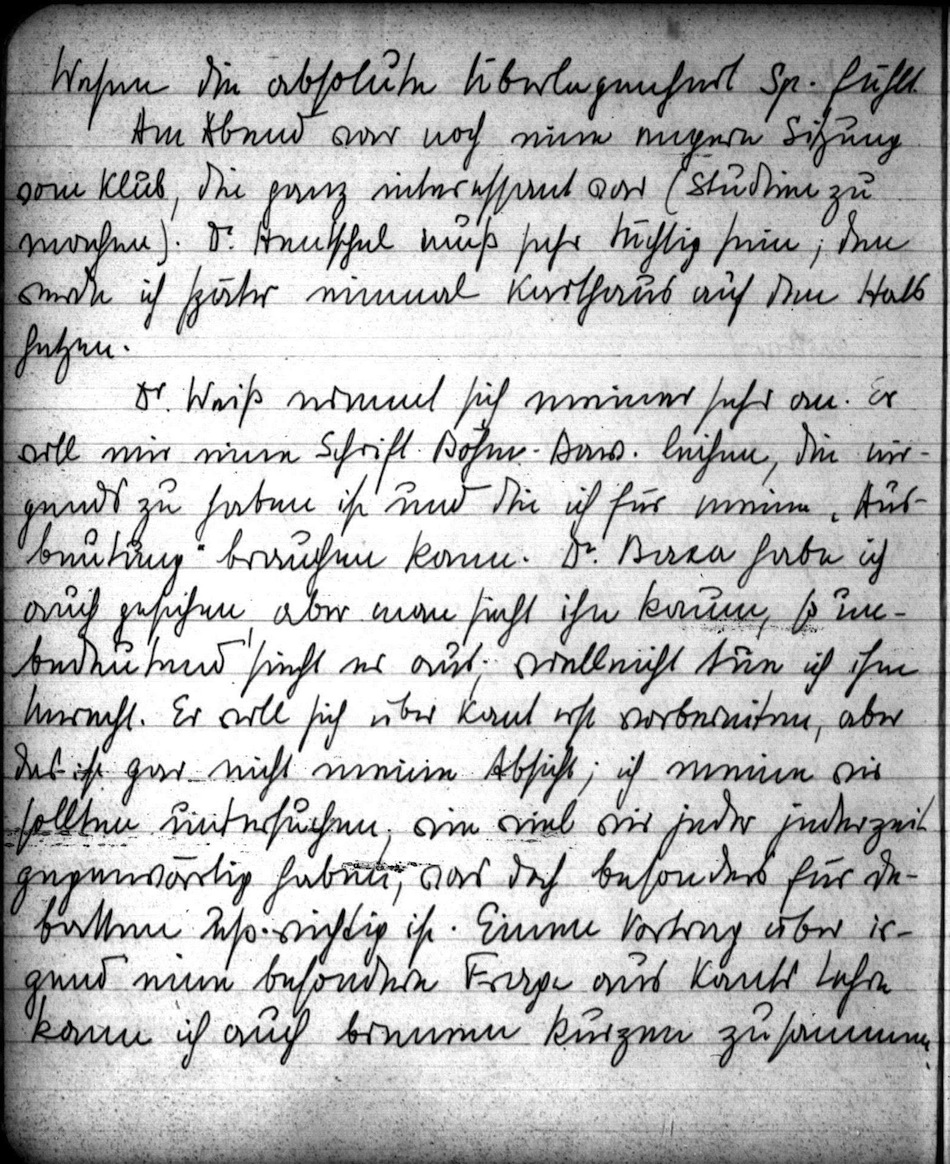 Wesen die absolute Überlegenheit Sp. fühlt.
Am Abend war noch eine engere Sitzung
vom Klub, die ganz interessant war (Studien zu
machen). Dr. Hentschel muß sehr tüchtig sein; den
werde ich später einmal Karthaus auf den Hals
hetzen.
Dr. Weiß nimmt sich meiner sehr an. Er
will mir eine Schrift Böhm-Baw. leihen, die nir-
gends zu haben ist und die ich für meine „Aus-
beutung“ brauchen kann. Dr. Baxa habe ich
auch gesehen, aber man sieht ihn kaum, so un-
bedeutend sieht er aus; vielleicht tue ich ihm
Unrecht. Er will sich über Kant erst vorbereiten, aber
das ist gar nicht meine Absicht; ich meine wir
sollten untersuchen, wie viel wir jeder jederzeit
gegenwärtig haben, was doch besonders für De-
batten usw. wichtig ist. Einen Vortrag über ir-
gend eine besondere Frage aus Kants Lehre
kann ich auch binnen kurzem zusammen